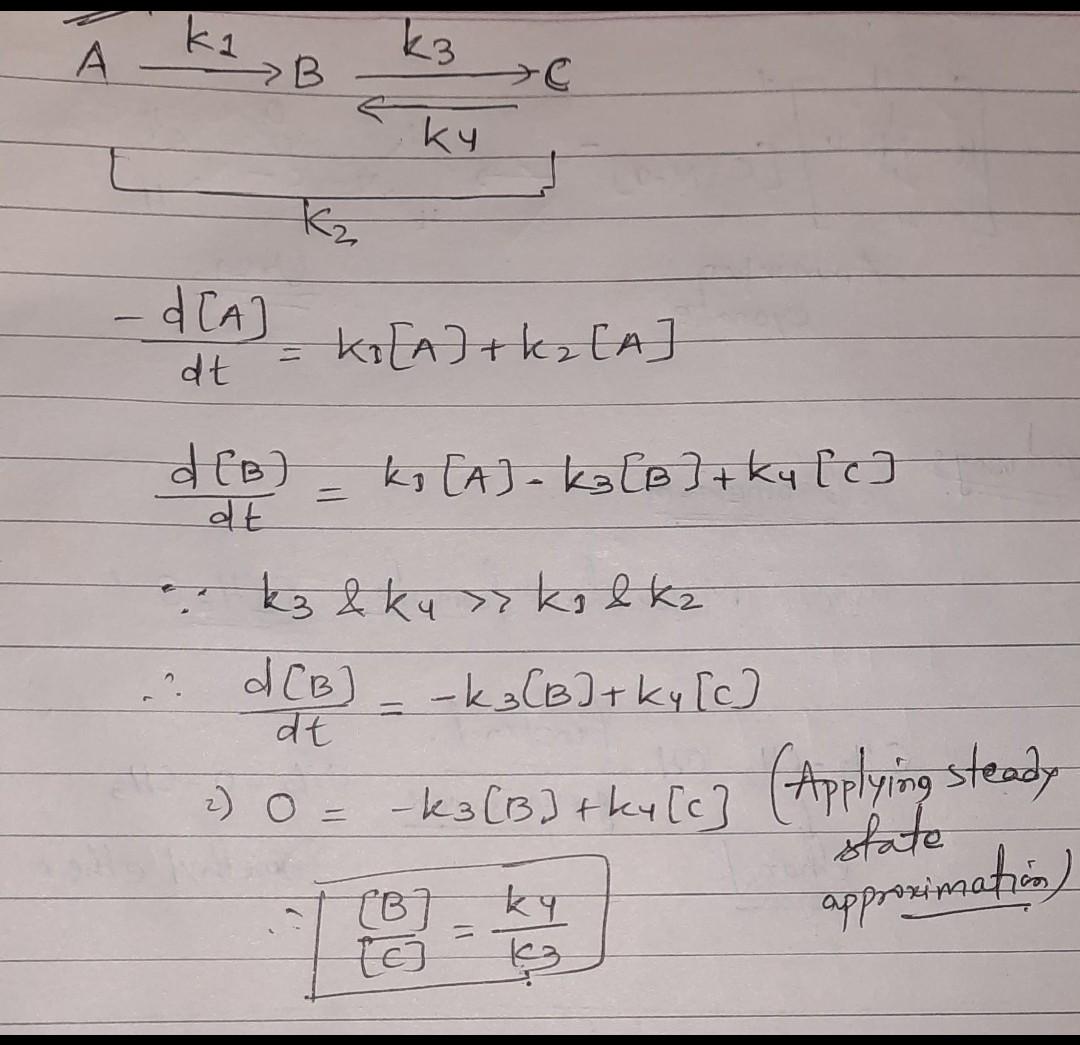 A k1 → B k3 ⇌ C
k4
k2
-d[A]/dt = k1[A] + k2[A]
d[B]/dt = k1[A] - k3[B] + k4[C]
∵ k3 & k4 >> k1 & k2
∴ d[B]/dt = -k3[B] + k4[C]
⇒ 0 = -k3[B] + k4[C] (Applying steady
state
approximation)
∴ [B]/[C] = k4/k3